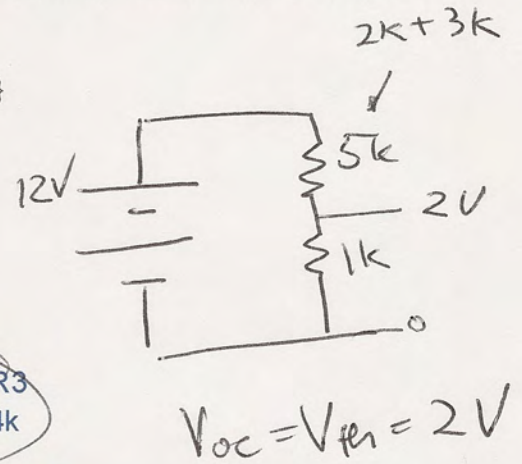 2K+3K
5k
12V
2V
1K
R3
4k
Voc=Vth=2V